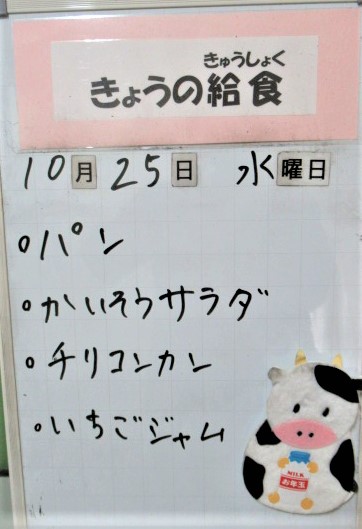 きゅうしょく
きょうの給食
10月25日 水曜日
○パン
○かいそうサラダ
○チリコンカン
○いちごジャム
MILK
お年玉